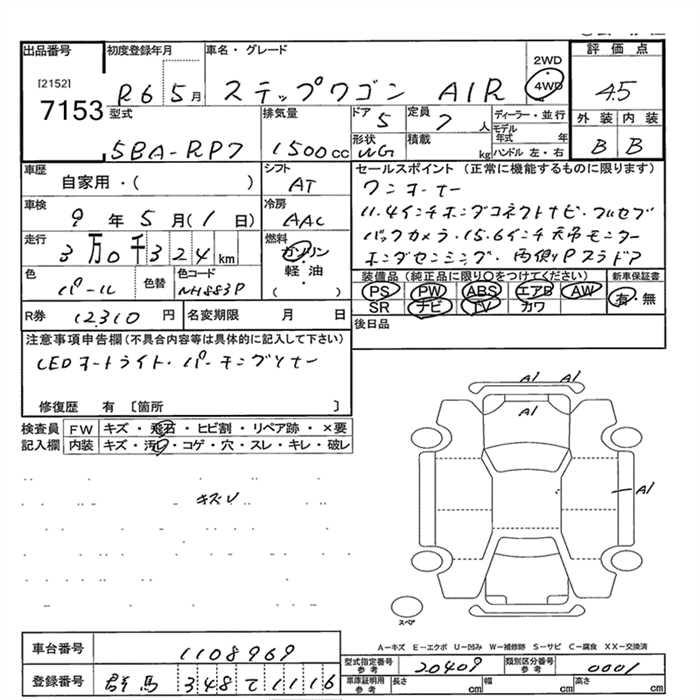 出品番号 初度登録年月 車名・グレード 評価点
[2152]
7153
R6 5月 ステップワゴン AIR 2WD 4WD 4.5
型式 排気量 ドア 5 定員 7人 ディーラー・並行 外装 内装
5BA-RP7 1500cc 形状 WG 積載 kg モデル年式 年 ハンドル 左・右 B B
車歴 シフト セールスポイント(正常に機能するものに限ります)
自家用・( ) AT ワンオーナー
車検 冷房 11.4インチホンダコネクトナビ・フルセグ
9年5月(1日) AAC バックカメラ・15.6インチ天吊モニター
走行 燃料 ホンダセンシング・両側Pスラドア
3万0千324km ガソリン・軽油・( )
色 色替 色コード 装備品(純正品に限り○をつけてください) 新車保証書
パール NH883P PS PW ABS エアB AW 有・無
SR ナビ TV カワ
R券 12310円 名変期限 月 日 後日品
注意事項申告欄(不具合内容等は具体的に記入して下さい)
LEDオートライト・パーキングソナー
修復歴 有 [箇所 ]
検査員記入欄 FW キズ・飛石・ヒビ割・リペア跡・×要
内装 キズ・汚レ・コゲ・穴・スレ・キレ・破レ
キズU
A1 A1
A1
A1
スペア
A‥キズ E‥エクボ U‥凹み W‥補修跡 S‥サビ C‥腐食 XX‥交換済
車台番号 1108969
型式指定番号参考 20409 類別区分番号参考 0001
登録番号 群馬 348て1116
車庫証明用参考 長さ cm 幅 cm 高さ cm